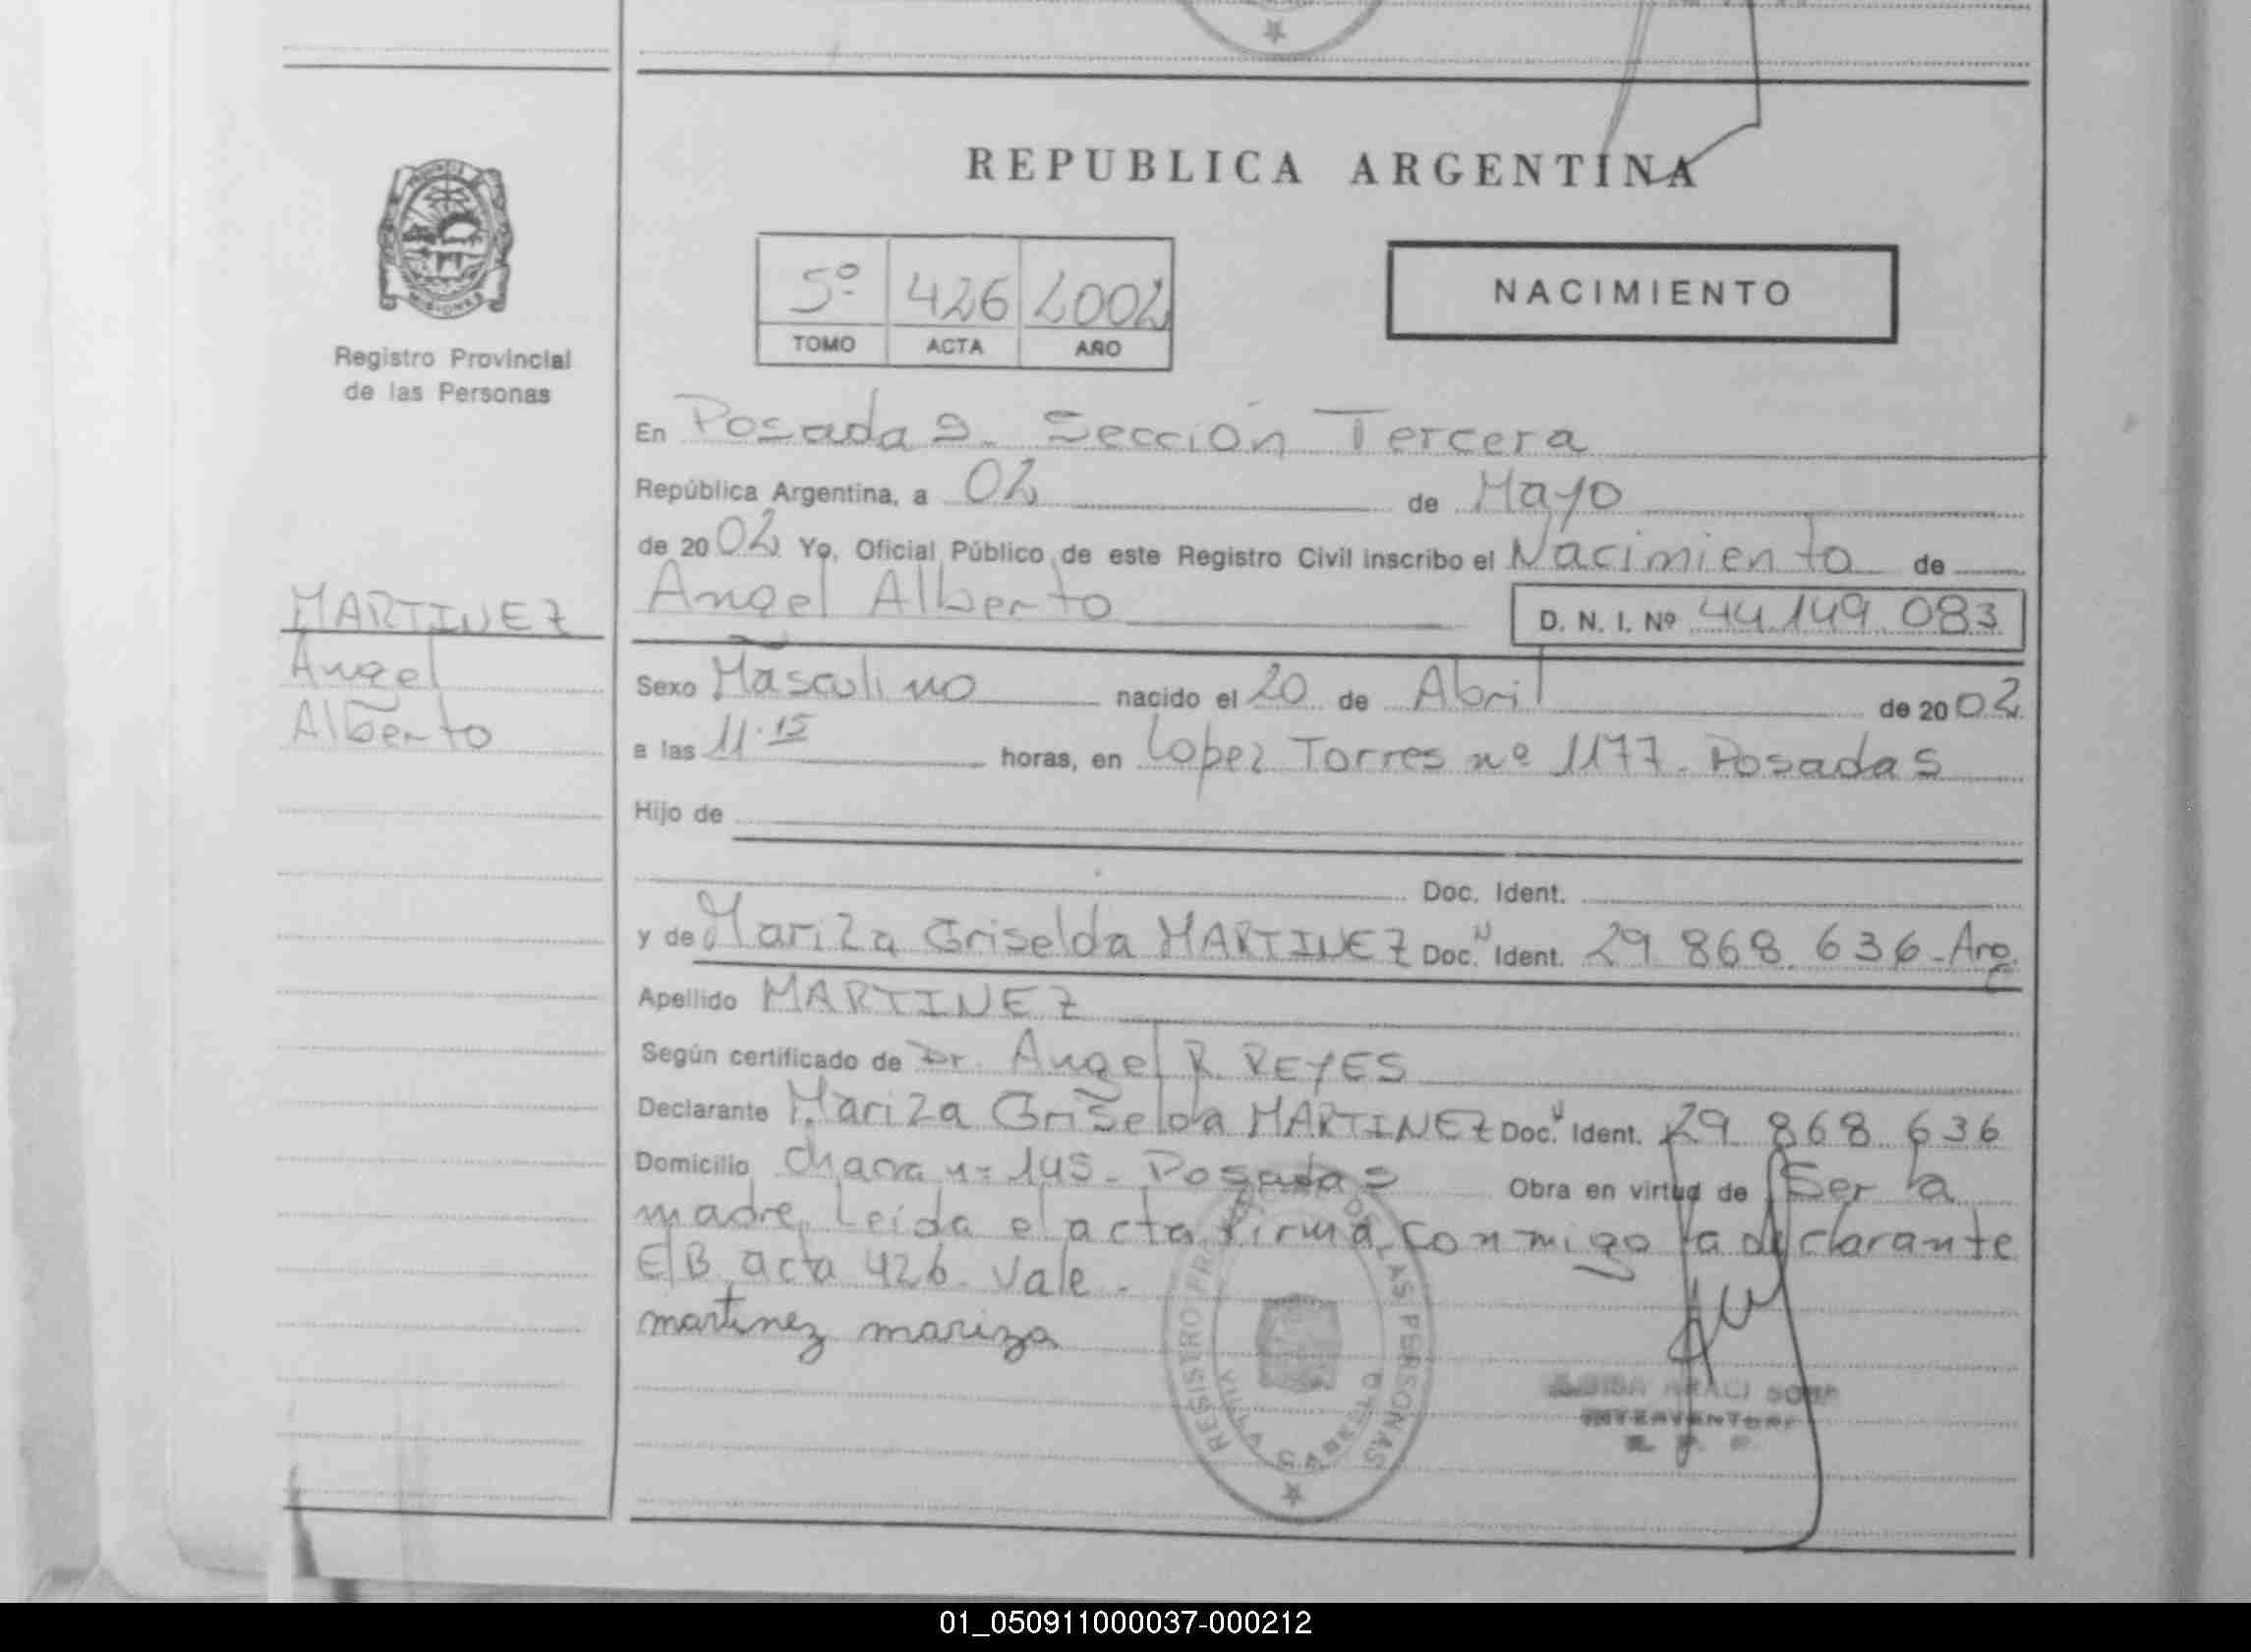 REPUBLICA ARGENTINA
MISIONES
Registro Provincial
de las Personas
5º 426 2002
TOMO ACTA AÑO
NACIMIENTO
En Posadas - Sección Tercera
República Argentina, a 02 de Mayo
de 2002 Yo, Oficial Público de este Registro Civil inscribo el Nacimiento de
Angel Alberto D. N. I. Nº 44.149.083
MARTINEZ
Angel
Alberto
Sexo Masculino nacido el 20 de Abril de 2002
a las 11.15 horas, en Lopez Torres nº 1177 - Posadas
Hijo de
Doc. Ident.
y de Mariza Griselda MARTINEZ Doc. Ident. 29.868.636 - Arg.
Apellido MARTINEZ
Según certificado de Dr. Angel R. REYES
Declarante Mariza Griselda MARTINEZ Doc. Ident. 29.868.636
Domicilio Chacra nº 145 - Posadas Obra en virtud de Ser la
madre. Leída el acta firma conmigo la declarante
E/B acta 426 - Vale -
martinez mariza
REGISTRO DE LAS PERSONAS
INTERVENTORA
01_050911000037-000212